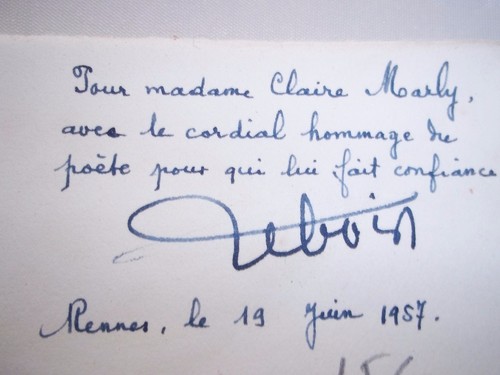 Pour madame Claire Marly,
avec le cordial hommage du
poète pour qui lui fait confiance
Rennes, le 19 Juin 1957.